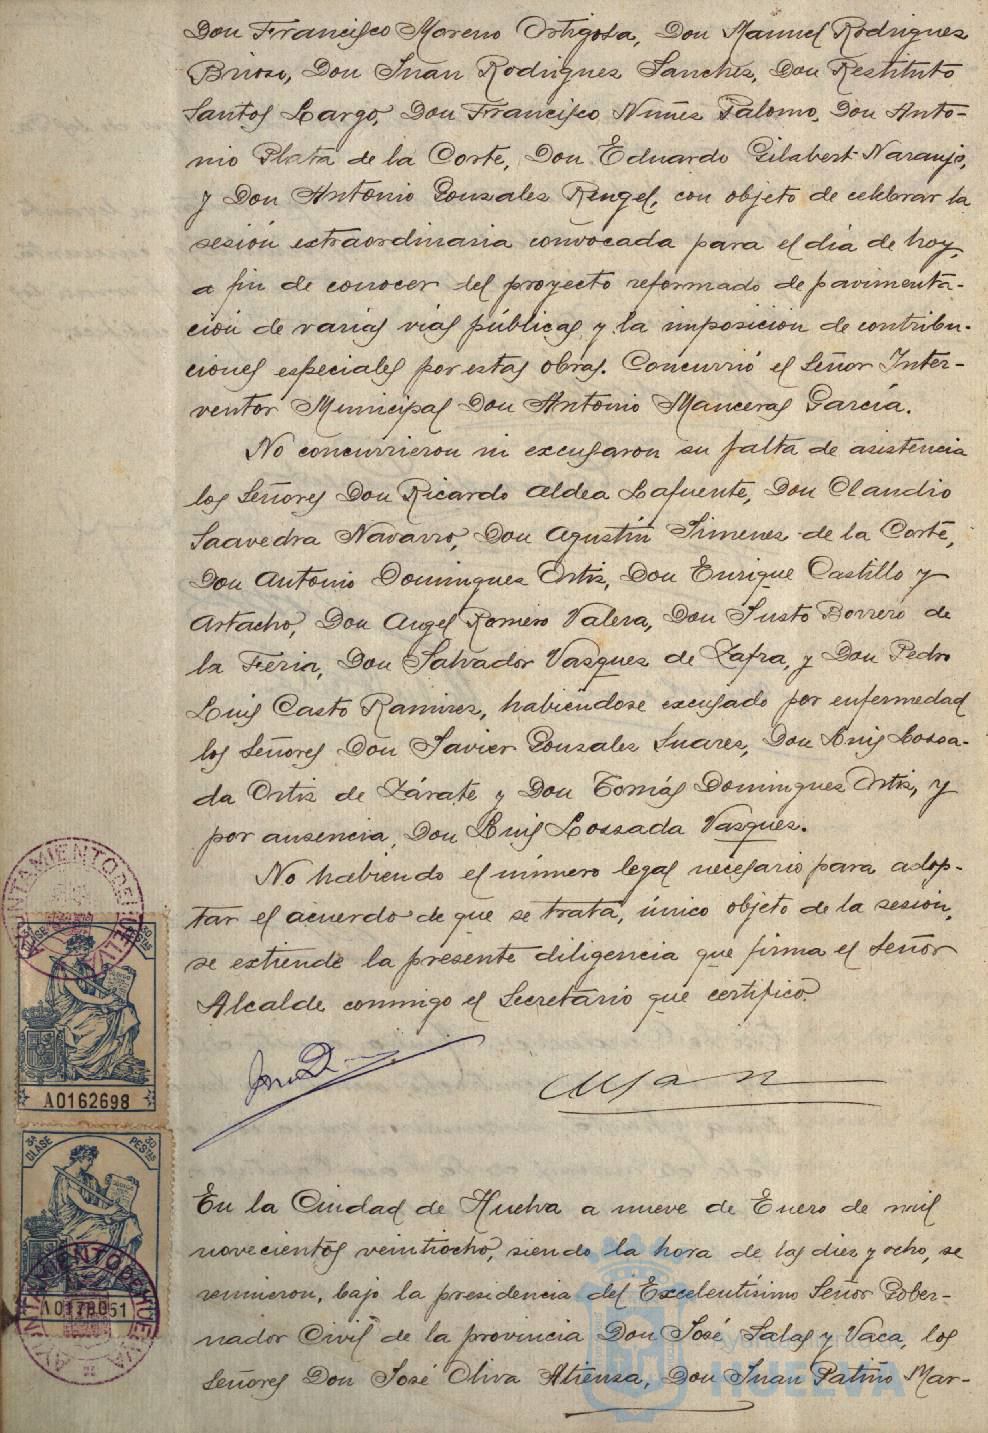 Don Francisco Moreno Ortigosa, Don Manuel Rodrigues
Brioso, Don Juan Rodrigues Sanches, Don Restituto
Santos Largo, Don Francisco Nuñes Palomo, Don Anto-
nio Plata de la Corte, Don Eduardo Gilabert Naranjo,
y Don Antonio Gonsales Rengel, con objeto de celebrar la
sesión extraordinaria convocada para el dia de hoy,
a fin de conocer del proyecto reformado de pavimenta-
ción de varias vias públicas y la imposición de contribu-
ciones especiales por estas obras. Concurrió el Señor Inter-
ventor Municipal Don Antonio Manceras García.
No concurrieron ni excusaron su falta de asistencia
los Señores Don Ricardo Aldea Lafuente, Don Claudio
Saavedra Navarro, Don Agustín Jimenes de la Corte,
Don Antonio Domingues Ortis, Don Enrique Castillo y
Artacho, Don Angel Romero Valera, Don Justo Borrero de
la Feria, Don Salvador Vasques de Zafra, y Don Pedro
Luis Casto Ramires, habiéndose excusado por enfermedad
los Señores Don Javier Gonsales Suares, Don Luis Lossa-
da Ortis de Zárate y Don Tomás Domingues Ortis, y
por ausencia, Don Luis Lossada Vasques.
No habiendo el número legal necesario para adop-
tar el acuerdo de que se trata, único objeto de la sesión,
se extiende la presente diligencia que firma el Señor
Alcalde conmigo el Secretario que certifico.
AYUNTAMIENTO DE HUELVA
3ª CLASE
30 PESETAS
A0162698
3ª CLASE
30 PESETAS
A0178051
AYUNTAMIENTO DE HUELVA
En la Ciudad de Huelva a nueve de Enero de mil
novecientos veintiocho, siendo la hora de las dies y ocho, se
reunieron, bajo la presidencia del Excelentísimo Señor Gober-
nador Civil de la provincia Don José Salas y Vaca, los
Señores Don José Oliva Atiensa, Don Juan Patiño Mar-
Ayuntamiento de
HUELVA